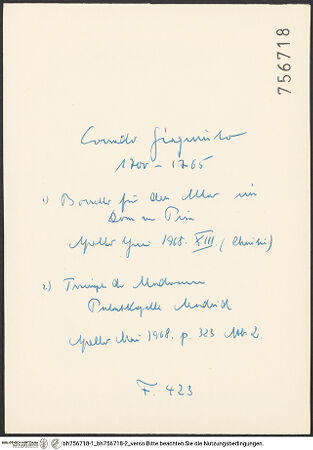 756718
Corrado Giaquinto
1700 - 1765
1) Bozzetto für den Altar im
Dom in Pisa
Apollo Juni 1968. XIII
2) Triumph der Madonna
Palastkapelle Madrid
Apollo Mai 1968, p. 323 Abb 2.
F. 423
bh756718-1_bh756718-2_verso Bitte beachten Sie die Nutzungsbedingungen.